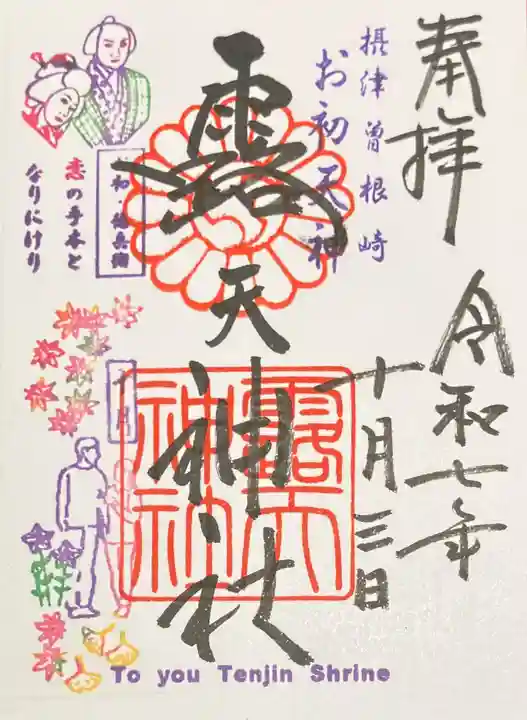 奉拝
令和七年
十月三日
摂津曽根崎
お初天神
露天神社
露天
神社
初・徳兵衛
恋の手本と
なりにけり
十月
To you Tenjin Shrine